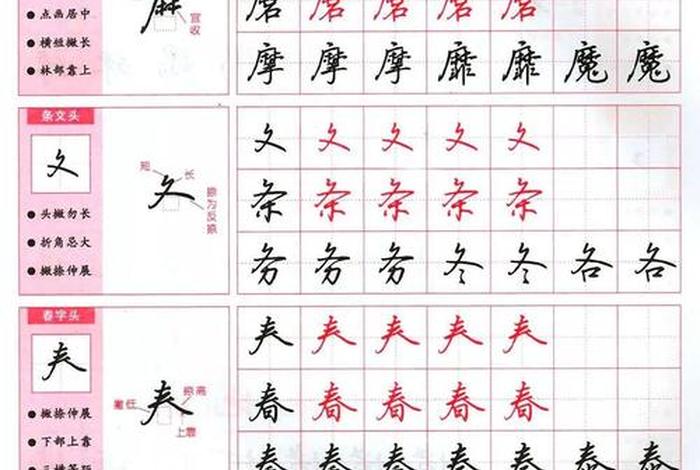 点画居中
横短撇长
林部靠上
麻
宜收
磨 磨 磨 磨 磨
摩 摩 摩 靡 靡 魔 魔
条文头
夂
头撇勿长
折角忌大
撇捺伸展
夂
短
长
捺为反捺
夂 夂 夂 夂 夂
条 条 条 条 条
务 务 务 冬 冬 各 各
春字头
𡗗
撇捺伸展
下部上靠
𡗗
撇低
捺高
上靠
𡗗 𡗗 𡗗 𡗗 𡗗
春 春 春 春 春